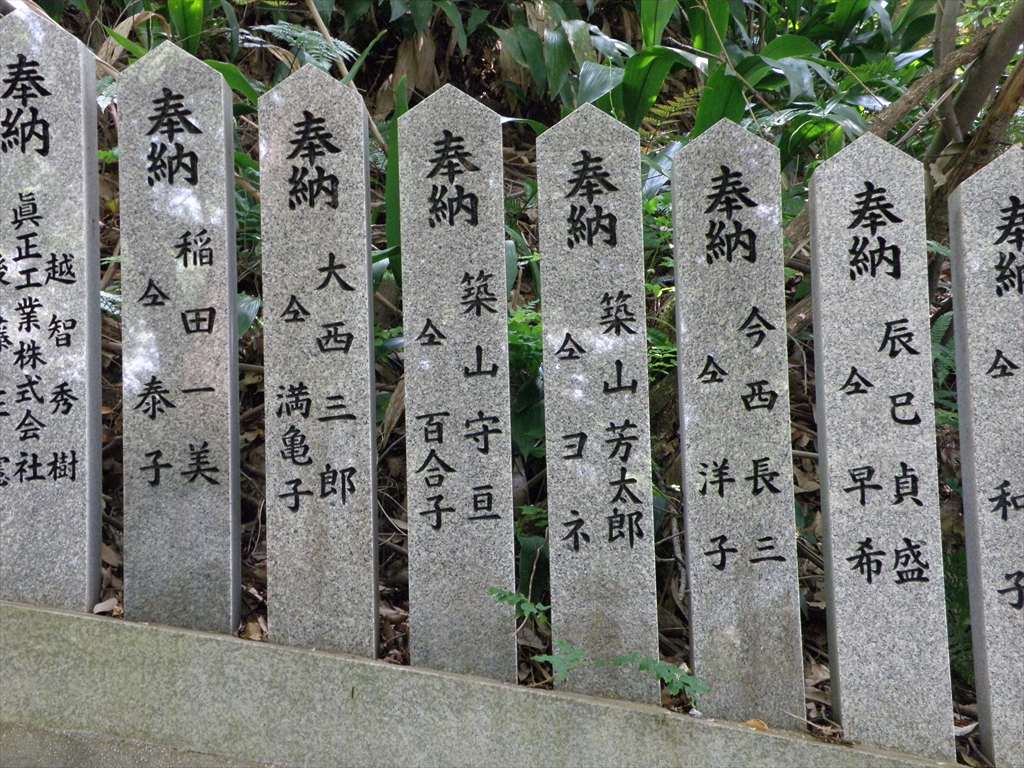 奉納
仝 和子
奉納
辰巳貞盛
仝 早希
奉納
今西長三
仝 洋子
奉納
築山芳太郎
仝 ヨネ
奉納
築山守亘
仝 百合子
奉納
大西三郎
仝 満亀子
奉納
稲田一美
仝 泰子
奉納
越智秀樹
眞正工業株式会社